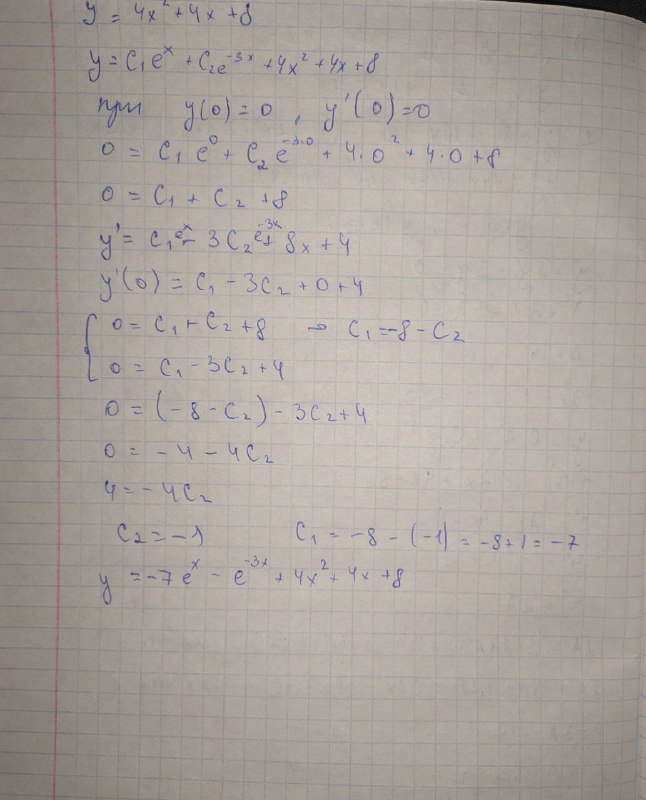 y = 4x² + 4x + 8
y = C₁eˣ + C₂e⁻³ˣ + 4x² + 4x + 8
при y(0) = 0 , y'(0) = 0
0 = C₁ e⁰ + C₂ e⁻³·⁰ + 4·0² + 4·0 + 8
0 = C₁ + C₂ + 8
y' = C₁eˣ - 3C₂e⁻³ˣ + 8x + 4
y'(0) = C₁ - 3C₂ + 0 + 4
{ 0 = C₁ + C₂ + 8 → C₁ = -8 - C₂
0 = C₁ - 3C₂ + 4
0 = (-8 - C₂) - 3C₂ + 4
0 = -4 - 4C₂
4 = -4C₂
C₂ = -1 C₁ = -8 - (-1) = -8 + 1 = -7
y = -7eˣ - e⁻³ˣ + 4x² + 4x + 8